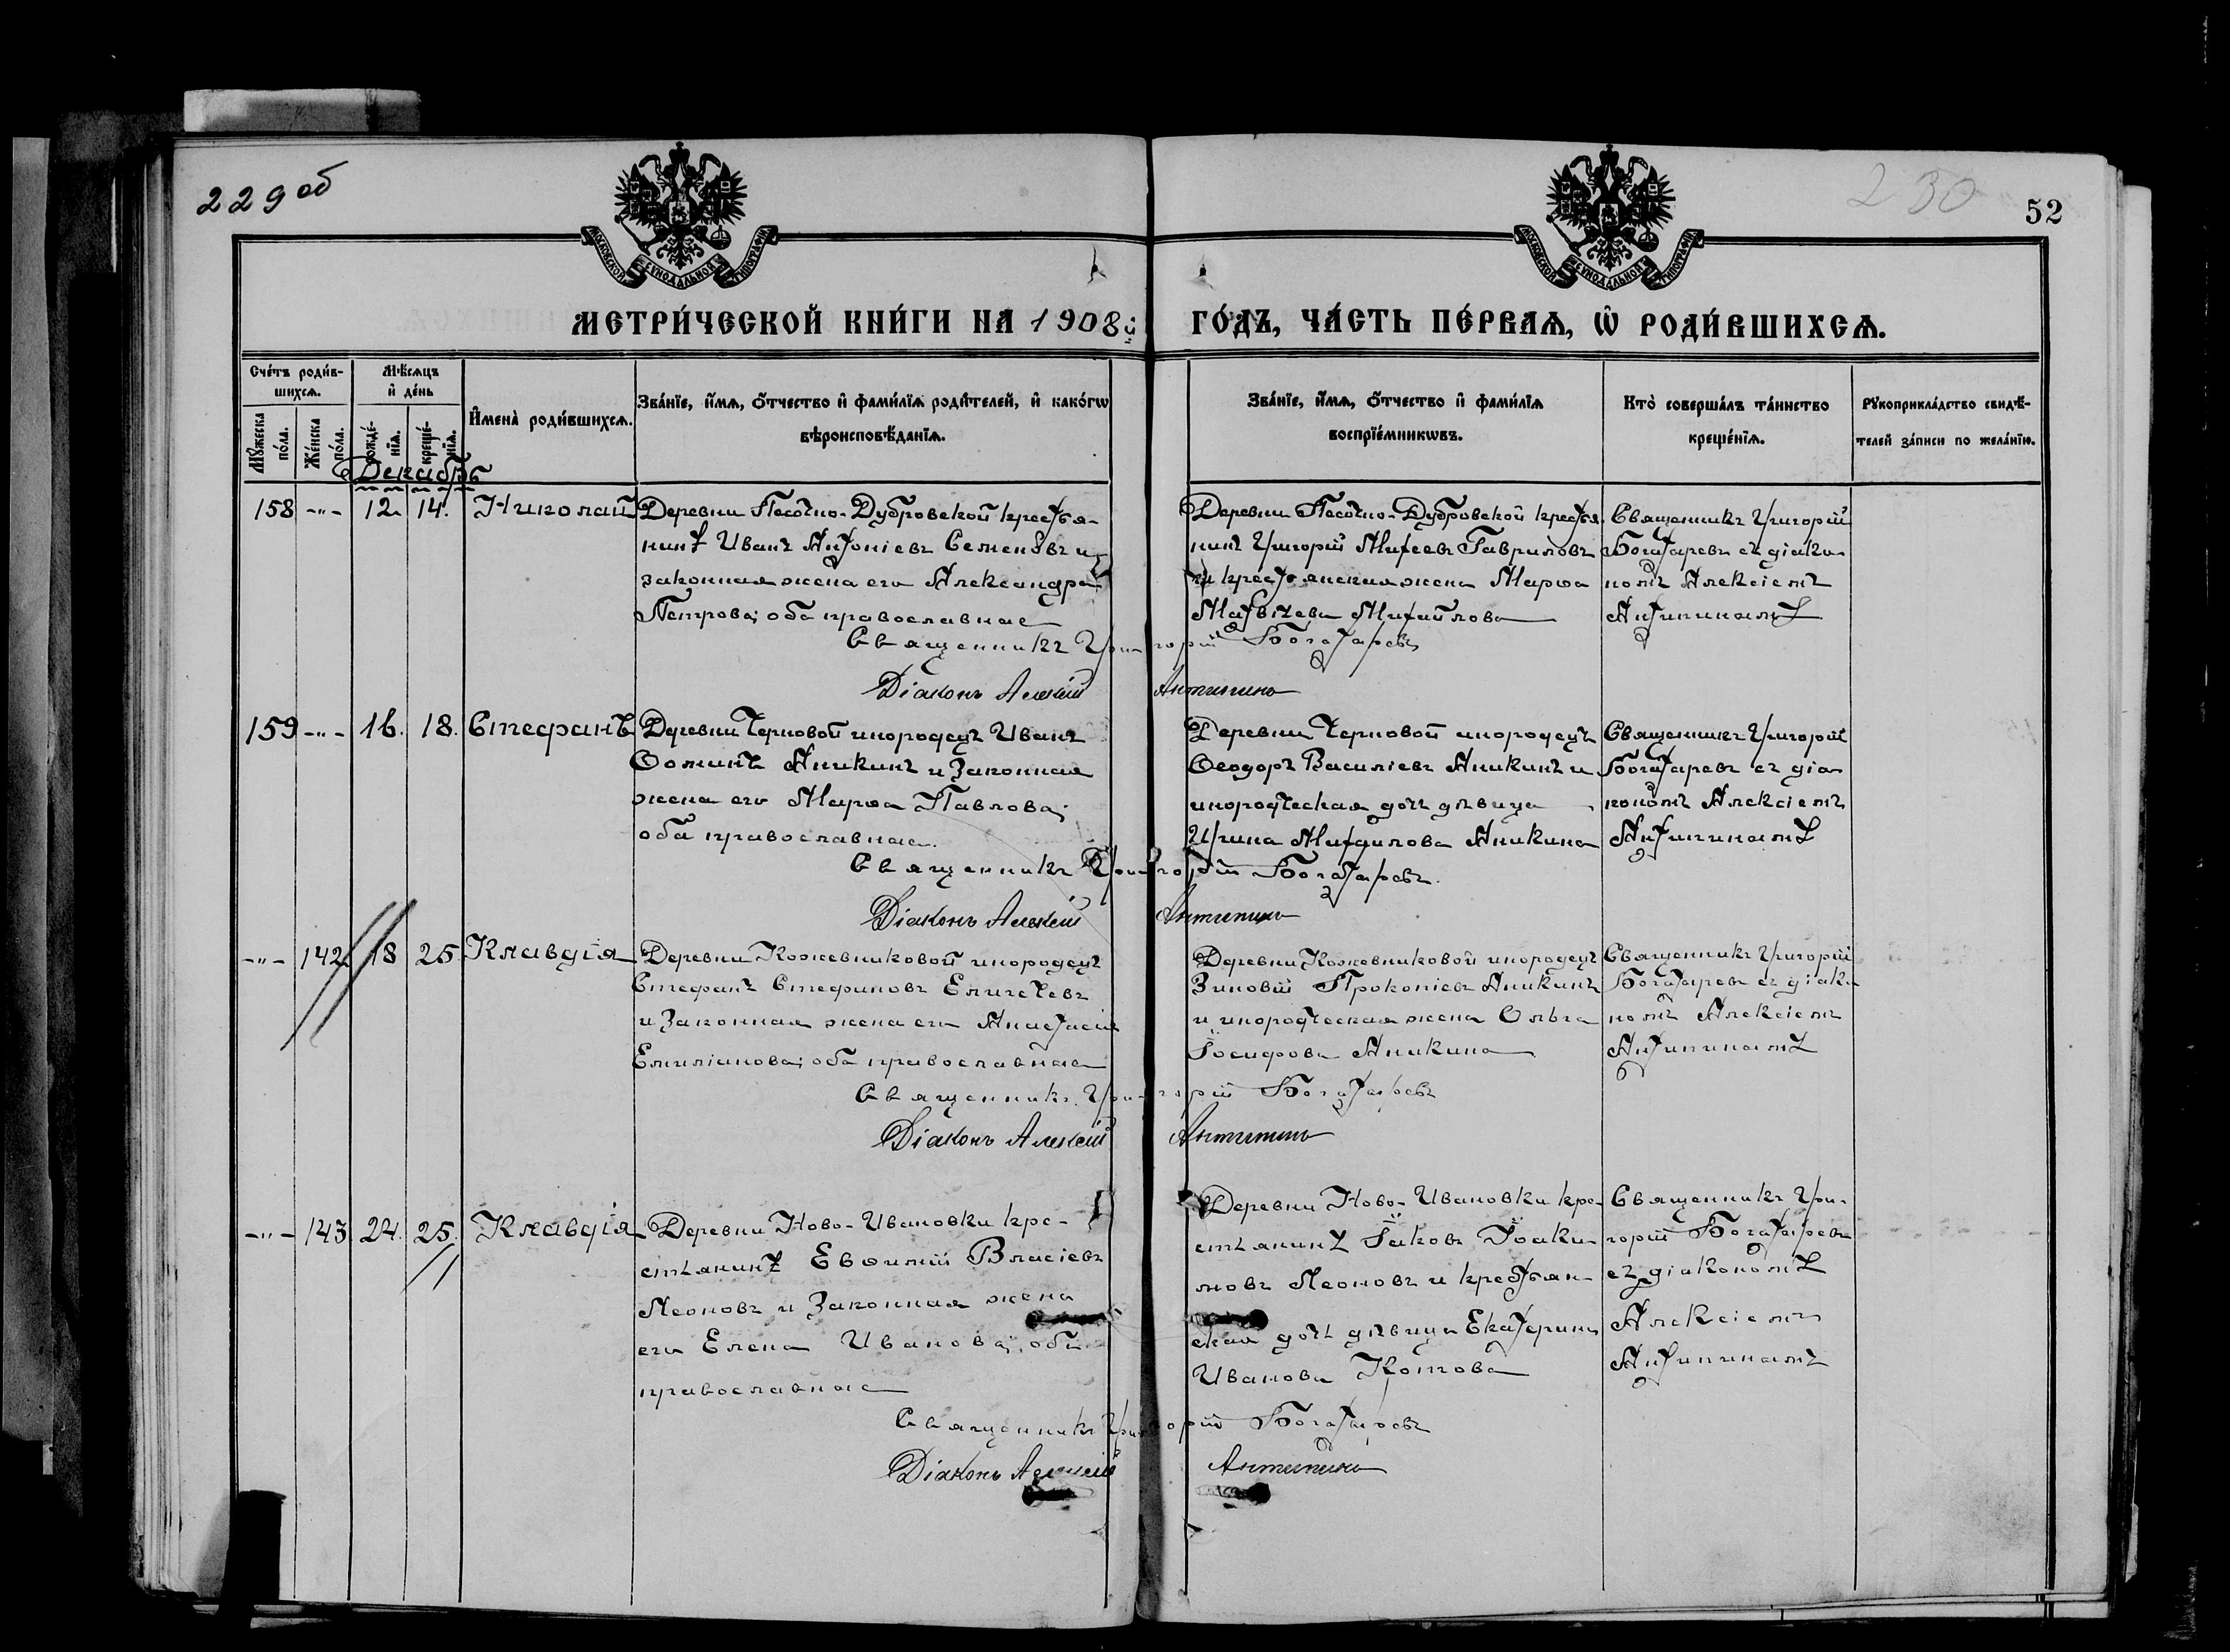 229 об
230
52
МОСКОВСКОЙ СУНОДАЛЬНОЙ ТИПОГРАФІИ
МОСКОВСКОЙ СУНОДАЛЬНОЙ ТИПОГРАФІИ
МЕТРИ́ЧЕСКОЙ КНИ́ГИ НА 1908й ГО́ДЪ, ЧА́СТЬ ПЕ́РВАѦ, Ѡ҆ РОДИ́ВШИХСѦ.
Сче́тъ роди́в-
шихсѧ.
Мꙋ́жеска по́ла.
Же́нска по́ла.
Мѣ́сѧцъ
и҆ де́нь
рожде́-нїѧ.
креще́-нїѧ.
И҆мена̀ роди́вшихсѧ.
Зва́нїе, и҆́мѧ, ѻ҆́тчество и҆ фами́лїѧ роди́телей, и҆ како́гѡ
вѣроисповѣ́данїѧ.
Зва́нїе, и҆́мѧ, ѻ҆́тчество и҆ фами́лїѧ
воспрїе́мникѡвъ.
Кто̀ соверша́лъ та́инство
креще́нїѧ.
Рꙋкоприкла́дство свидѣ́-
телей за́писи по жела́нїю.
Декабрь
158 -"- 12. 14. Николай
Деревни Песочно-Дубровской крестья-
нинъ Иванъ Антоніевъ Семеновъ и
законная жена его Александра
Петрова; оба православные
Деревни Песочно-Дубровской крестья-
нинъ Григорій Михеевъ Гавриловъ
и крестьянская жена Марѳа
Матвіева Михайлова
Священникъ Григорій
Богатыревъ съ діако-
номъ Алексіемъ
Антипинымъ
Священникъ Григорій Богатыревъ
Діаконъ Алексій Антипинъ
159 -"- 16. 18. Стефанъ
Деревни Черновой инородецъ Иванъ
Ѳоминъ Аникинъ и законная
жена его Марѳа Павлова;
оба православные.
Деревни Черновой инородецъ
Ѳеодоръ Василіевъ Аникинъ и
инородческая дочь дѣвица
Ирина Михаилова Аникина
Священникъ Григорій
Богатыревъ съ діа-
кономъ Алексіемъ
Антипинымъ
Священникъ Григорій Богатыревъ.
Діаконъ Алексій Антипинъ
-"- 142 18 25 Клавдія
Деревни Кожевниковой инородецъ
Стефанъ Стефановъ Еличевъ
и законная жена его Анастасія
Емиліанова; оба православные
Деревни Кожевниковой инородецъ
Зиновій Прокопіевъ Аникинъ
и инородческая жена Ольга
Іосифова Аникина
Священникъ Григорій
Богатыревъ съ діако-
номъ Алексіемъ
Антипинымъ
Священникъ Григорій Богатыревъ
Діаконъ Алексій Антипинъ
-"- 143 24. 25. Клавдія
Деревни Ново-Ивановки кре-
стьянинъ Евѳимій Власіевъ
Леоновъ и законная жена
его Елена Иванова; оба
православные
Деревни Ново-Ивановки кре-
стьянинъ Іаковъ Іоаки-
мовъ Леоновъ и крестьян-
ская дочь дѣвица Екатерина
Иванова Котова
Священникъ Гри-
горій Богатыревъ
съ діакономъ
Алексіемъ
Антипинымъ
Священникъ Григорій Богатыревъ
Діаконъ Алексій Антипинъ